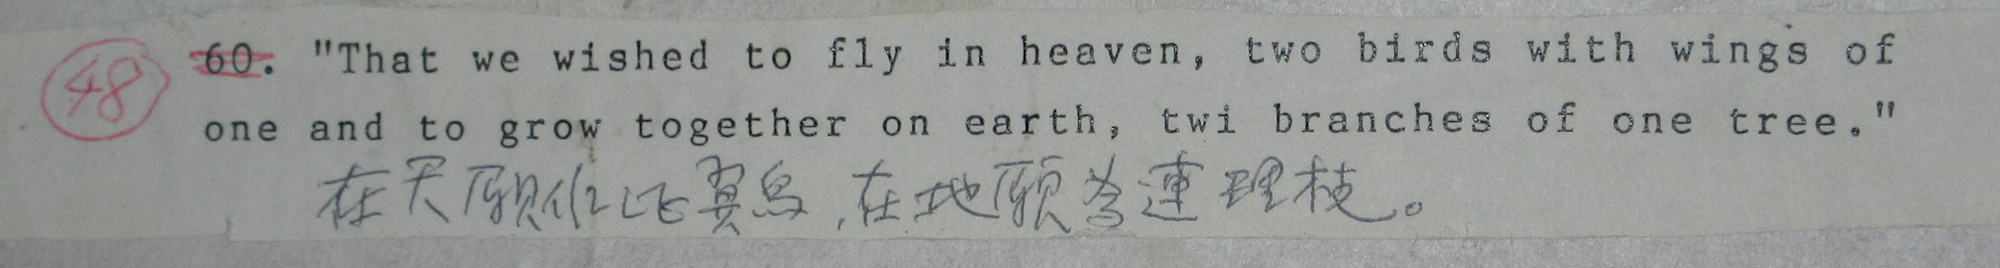 48 60. "That we wished to fly in heaven, two birds with wings of
one and to grow together on earth, twi branches of one tree."
在天願化比翼鳥,在地願為連理枝。